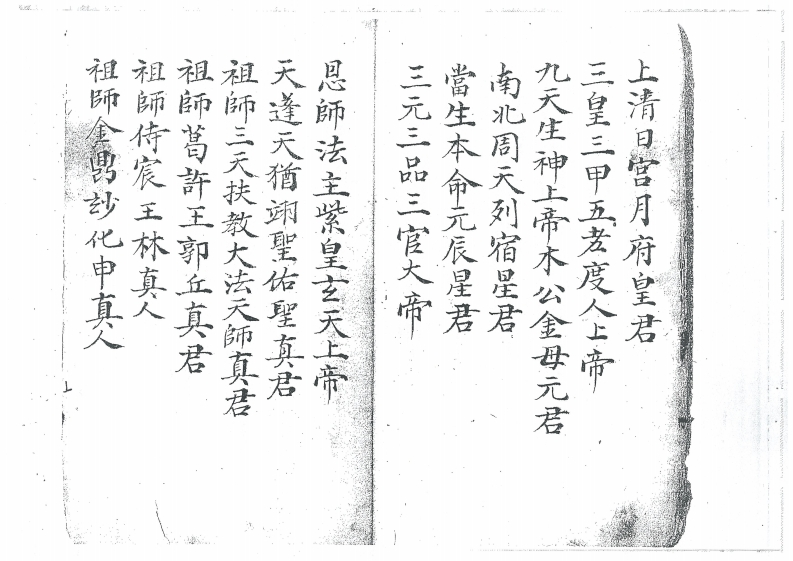 上清日宮月府皇君
三皇三甲五老度人上帝
九天生神上帝木公金母元君
南北周天列宿星君
當生本命元辰星君
三元三品三官大帝
恩師法主紫皇玄天上帝
天蓬天猶翊聖佑聖真君
祖師三天扶教大法天師真君
祖師葛許王郭丘真君
祖師侍宸王林真人
祖師金鼎妙化申真人